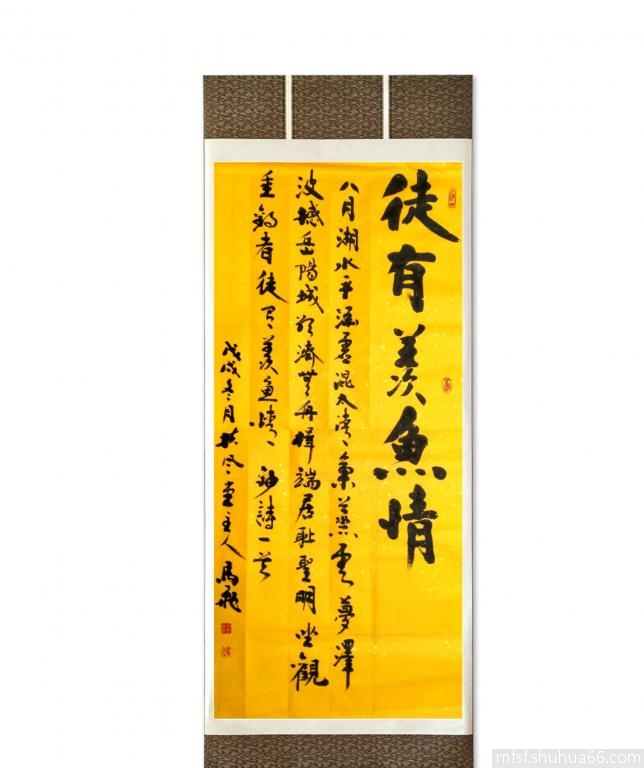 徒有羡魚情
八月湖水平涵虛混太清氣蒸雲夢澤
波撼岳陽城欲濟無舟楫端居耻聖明坐觀
垂釣者徒有羡魚情 詩一首
戊戌冬月扶风堂主人馬飛
mfsf.shuhua66.com